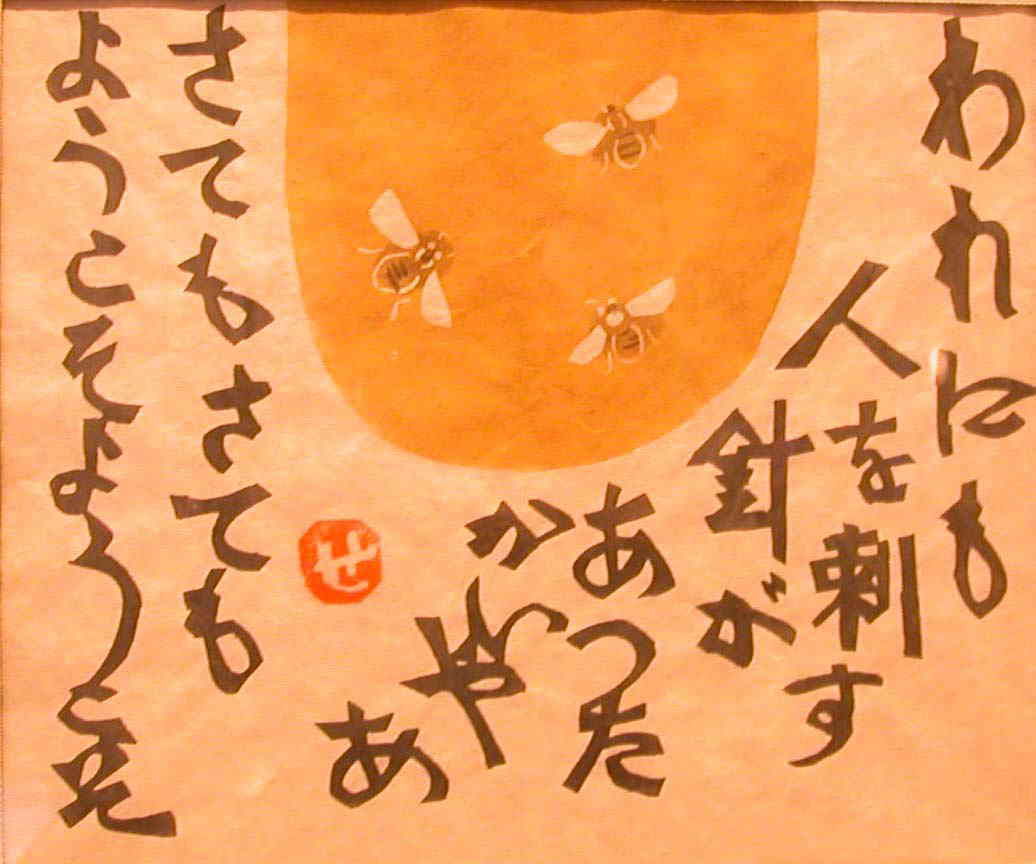 われにも
人を刺す
針が
あつた
かや
あ
さてもさても
ようこそようこそ
せ